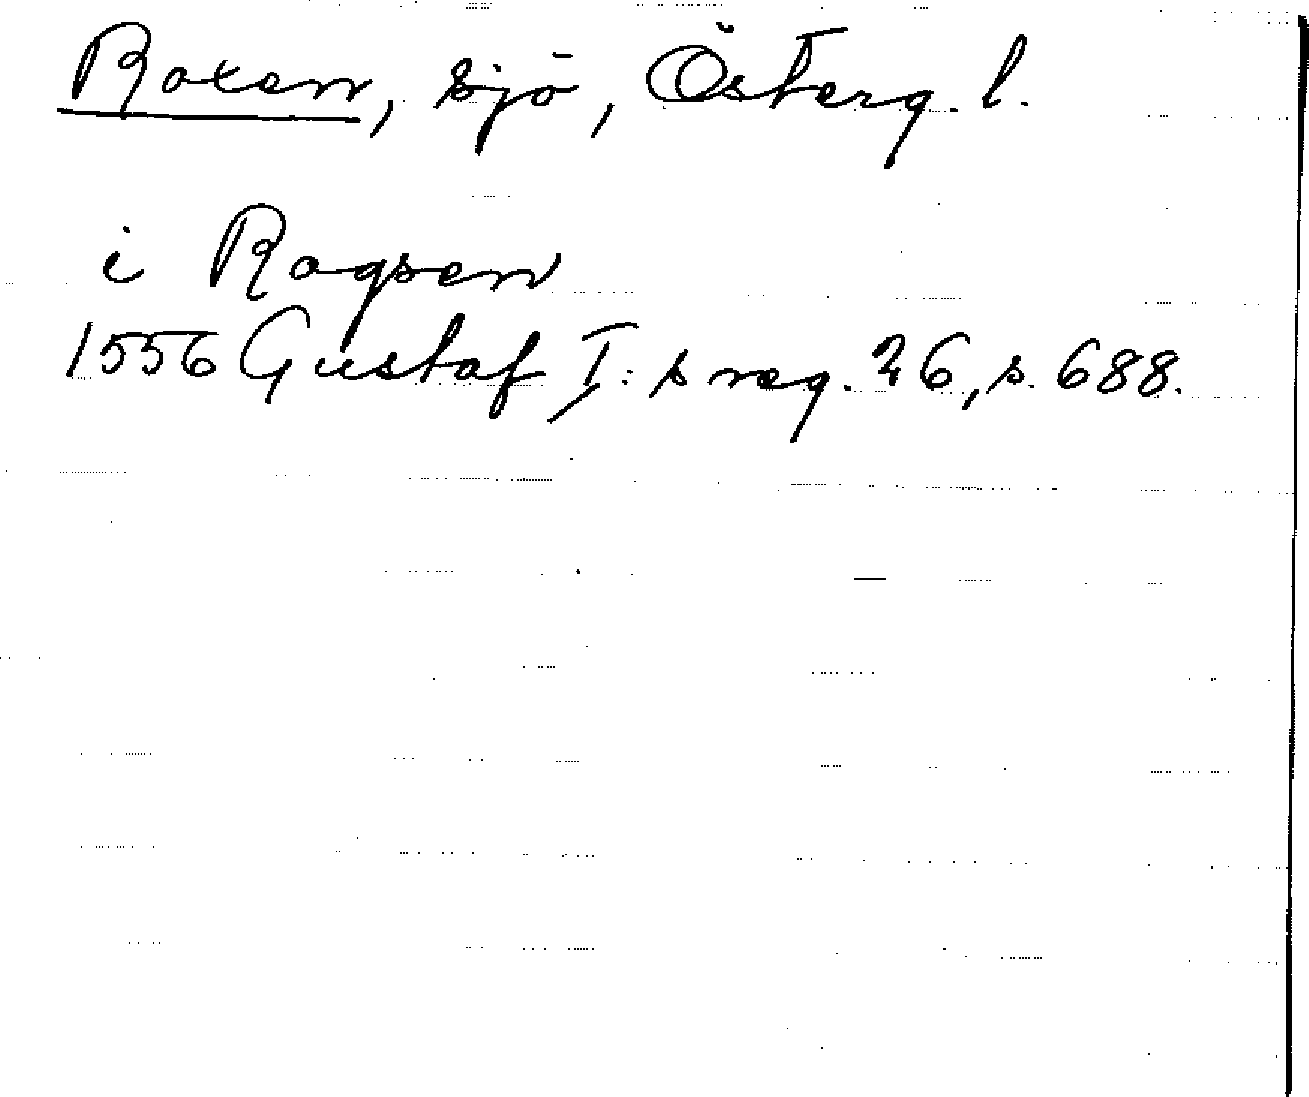 Roxen, sjö, Österg. l.
i Rogsen
1556 Gustaf I:s reg. 26, s. 688.